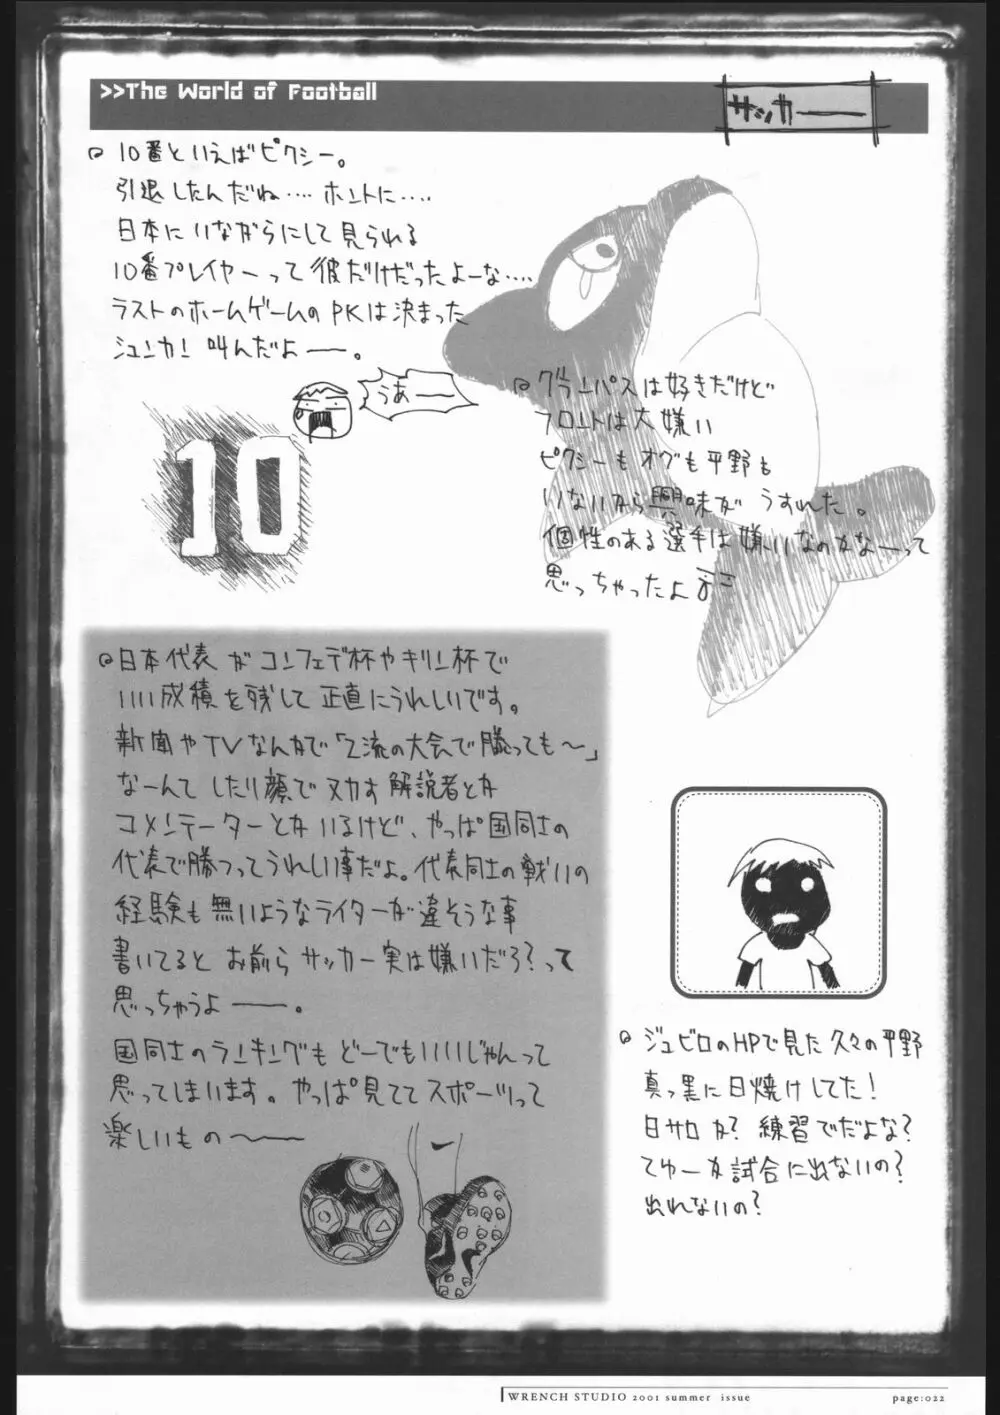 >>The World of Football
サッカー
10番といえばピクシー。
引退したんだね‥‥ホントに‥‥
日本にいながらにして見られる
10番プレイヤーって彼だけだったよーな‥‥
ラストのホームゲームのPKは決まった
シュンカン叫んだよー。
うあー
10
グランパスは好きだけど
フロントは大嫌い
ピクシーもオグも平野も
いないから興味がうすれた。
個性のある選手は嫌いなのかなーって
思っちゃったよ
日本代表がコンフェデ杯やキリン杯で
いい成積を残して正直にうれしいです。
新聞やTVなんかで「2流の大会で勝っても〜」
なーんてしたり顔でヌカす解説者とか
コメンテーターとかいるけど、やっぱ国同士の
代表で勝つってうれしい事だよ。代表同士の戦いの
経験も無いようなライターが違そうな事
書いてるとお前らサッカー実は嫌いだろ?って
思っちゃうよー。
国同士のランキングもどーでもいいじゃんって
思ってしまいます。やっぱ見ててスポーツって
楽しいもの〜
ジュビロのHPで見た久々の平野
真っ黒に日焼けしてた!
日サロか?練習でだよな?
てゆーか試合に出ないの?
出れないの?
WRENCH STUDIO 2001 summer issue
page:022